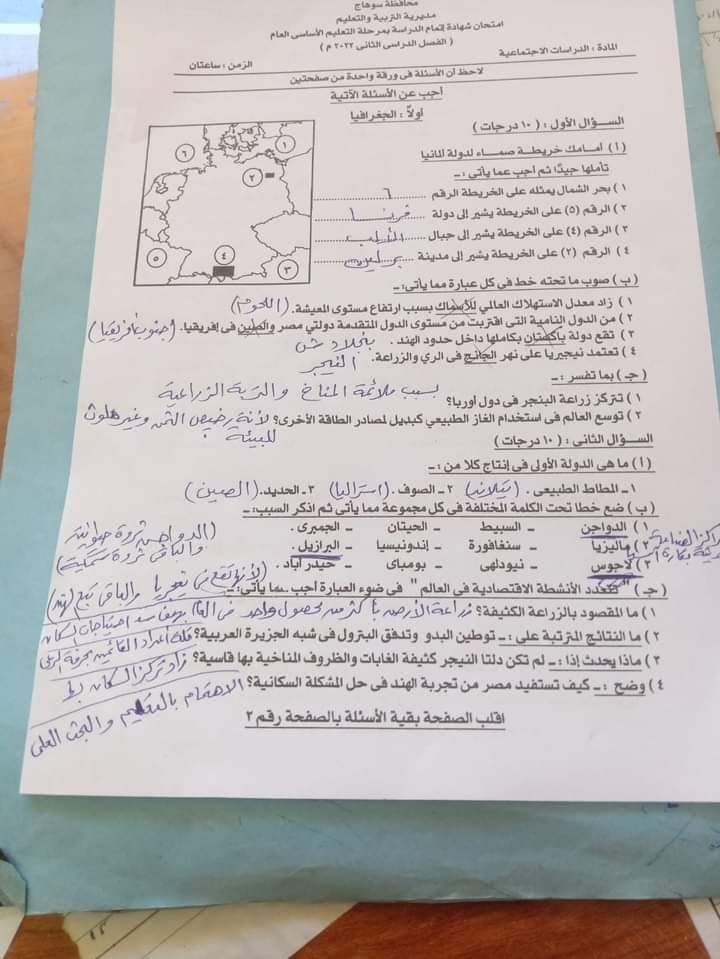 محافظة سوهاج
مديرية التربية والتعليم
امتحان شهادة إتمام الدراسة بمرحلة التعليم الأساسى العام
( الفصل الدراسى الثانى ٢٠٢٢ م )
المادة : الدراسات الاجتماعية
الزمن : ساعتان
لاحظ أن الأسئلة فى ورقة واحدة من صفحتين
أجب عن الأسئلة الآتية
أولاً : الجغرافيا
السـؤال الأول : ( ١٠ درجات )
( أ ) أمامك خريطة صماء لدولة ألمانيا
تأملها جيدًا ثم أجب عما يأتى :ـ
١ ) بحر الشمال يمثله على الخريطة الرقم ٦
٢ ) الرقم (٥) على الخريطة يشير إلى دولة فرنسا
٣ ) الرقم (٤) على الخريطة يشير إلى جبال الألب
٤ ) الرقم (٢) على الخريطة يشير إلى مدينة برلين
١
٦
٢
٥
٤
٣
( ب ) صوب ما تحته خط فى كل عبارة مما يأتى:ـ
١ ) زاد معدل الاستهلاك العالمي للأسماك بسبب ارتفاع مستوى المعيشة. (اللحوم)
٢ ) من الدول النامية التى اقتربت من مستوى الدول المتقدمة دولتي مصر والصين فى إفريقيا. (جنوب أفريقيا)
٣ ) تقع دولة باكستان بكاملها داخل حدود الهند . بنجلاديش
٤ ) تعتمد نيجيريا على نهر الجانج فى الري والزراعة. النيجر
( جـ ) بما تفسر :ـ
١ ) تتركز زراعة البنجر فى دول أوربا؟ بسبب ملائمة المناخ والتربة الزراعية
٢ ) توسع العالم فى استخدام الغاز الطبيعي كبديل لمصادر الطاقة الأخرى؟ لأنه رخيص الثمن وغير ملوث
للبيئة
السـؤال الثانى : ( ١٠ درجات )
( أ ) ما هى الدولة الأولى فى إنتاج كلا من :ـ
١ ـ المطاط الطبيعى . (تايلاند) ٢ ـ الصوف . (استراليا) ٣ ـ الحديد. (الصين)
( ب ) ضع خطا تحت الكلمة المختلفة فى كل مجموعة مما يأتى ثم اذكر السبب:ـ
١ ) الدواجن – السبيط – الحيتان – الجمبرى . (الدواجن ثروة حيوانية
والباقى ثروة سمكية)
٢ ) ماليزيا – سنغافورة – إندونيسيا – البرازيل .
٣ ) لاجوس – نيودلهى – بومباى – حيدر أباد . (لأنها تقع فى نيجيريا والباقى تتبع الهند)
( جـ ) " تتعدد الأنشطة الاقتصادية فى العالم " فى ضوء العبارة أجب عما يأتى:ـ
١ ) ما المقصود بالزراعة الكثيفة؟ زراعة الأرض بأكثر من محصول واحد فى العام بهدف سد احتياجات السكان
٢ ) ما النتائج المترتبة على :ـ توطين البدو وتدفق البترول فى شبه الجزيرة العربية؟ قلة أعداد القائمين بحرفة الرعى
٣ ) ماذا يحدث إذا :ـ لم تكن دلتا النيجر كثيفة الغابات والظروف المناخية بها قاسية؟ زاد تركز السكان بها
٤ ) وضح :ـ كيف تستفيد مصر من تجربة الهند فى حل المشكلة السكانية؟ الاهتمام بالتعليم والبحث العلمى
اقلب الصفحة بقية الأسئلة بالصفحة رقم ٢